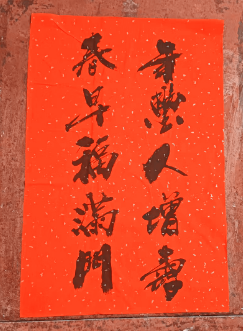 年豐人增壽
春早福滿門